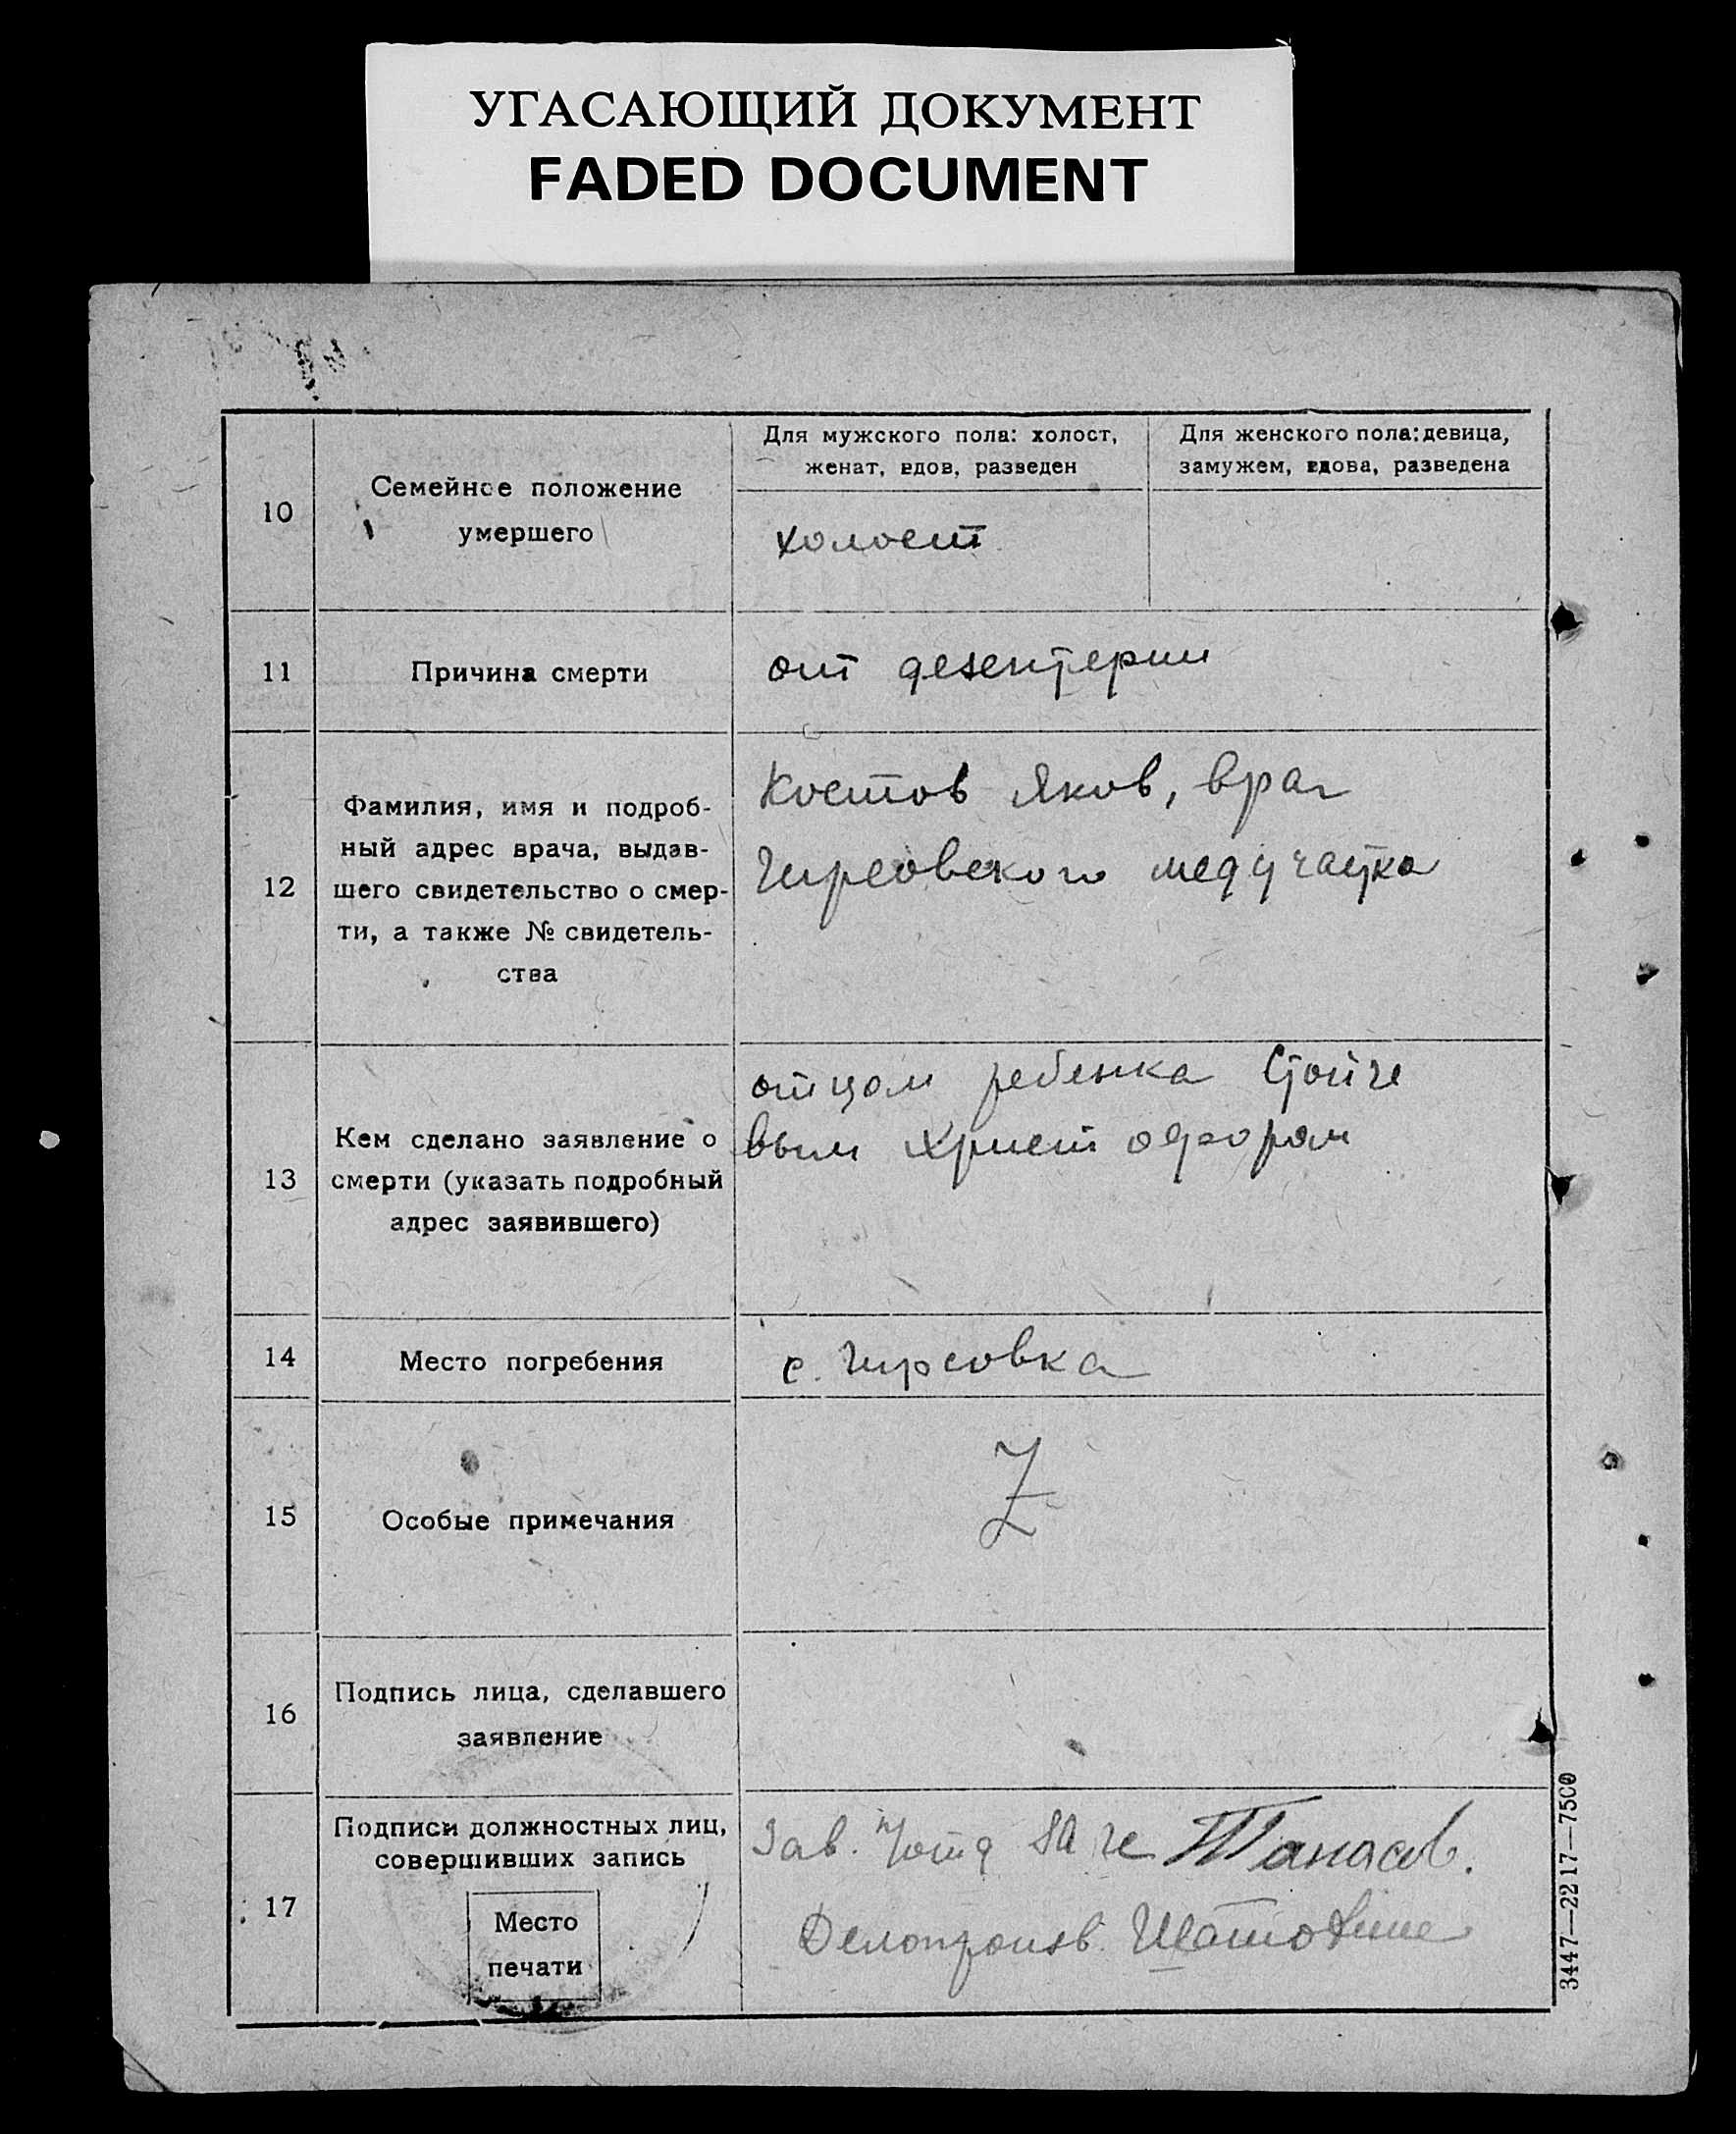 УГАСАЮЩИЙ ДОКУМЕНТ
FADED DOCUMENT
10
Семейное положение
умершего
Для мужского пола: холост,
женат, вдов, разведен
Для женского пола: девица,
замужем, вдова, разведена
холост
11
Причина смерти
от дезентерии
12
Фамилия, имя и подроб-
ный адрес врача, выдав-
шего свидетельство о смер-
ти, а также № свидетель-
ства
Костов Яков, врач
Чирсовского медучастка
13
Кем сделано заявление о
смерти (указать подробный
адрес заявившего)
отцом ребенка Стойче
вым Христофором
14
Место погребения
с. Чирсовка
15
Особые примечания
Z
16
Подпись лица, сделавшего
заявление
17
Подписи должностных лиц,
совершивших запись
Место
печати
Зав. Танасов.
Делопроизв.
3447—2217—7500